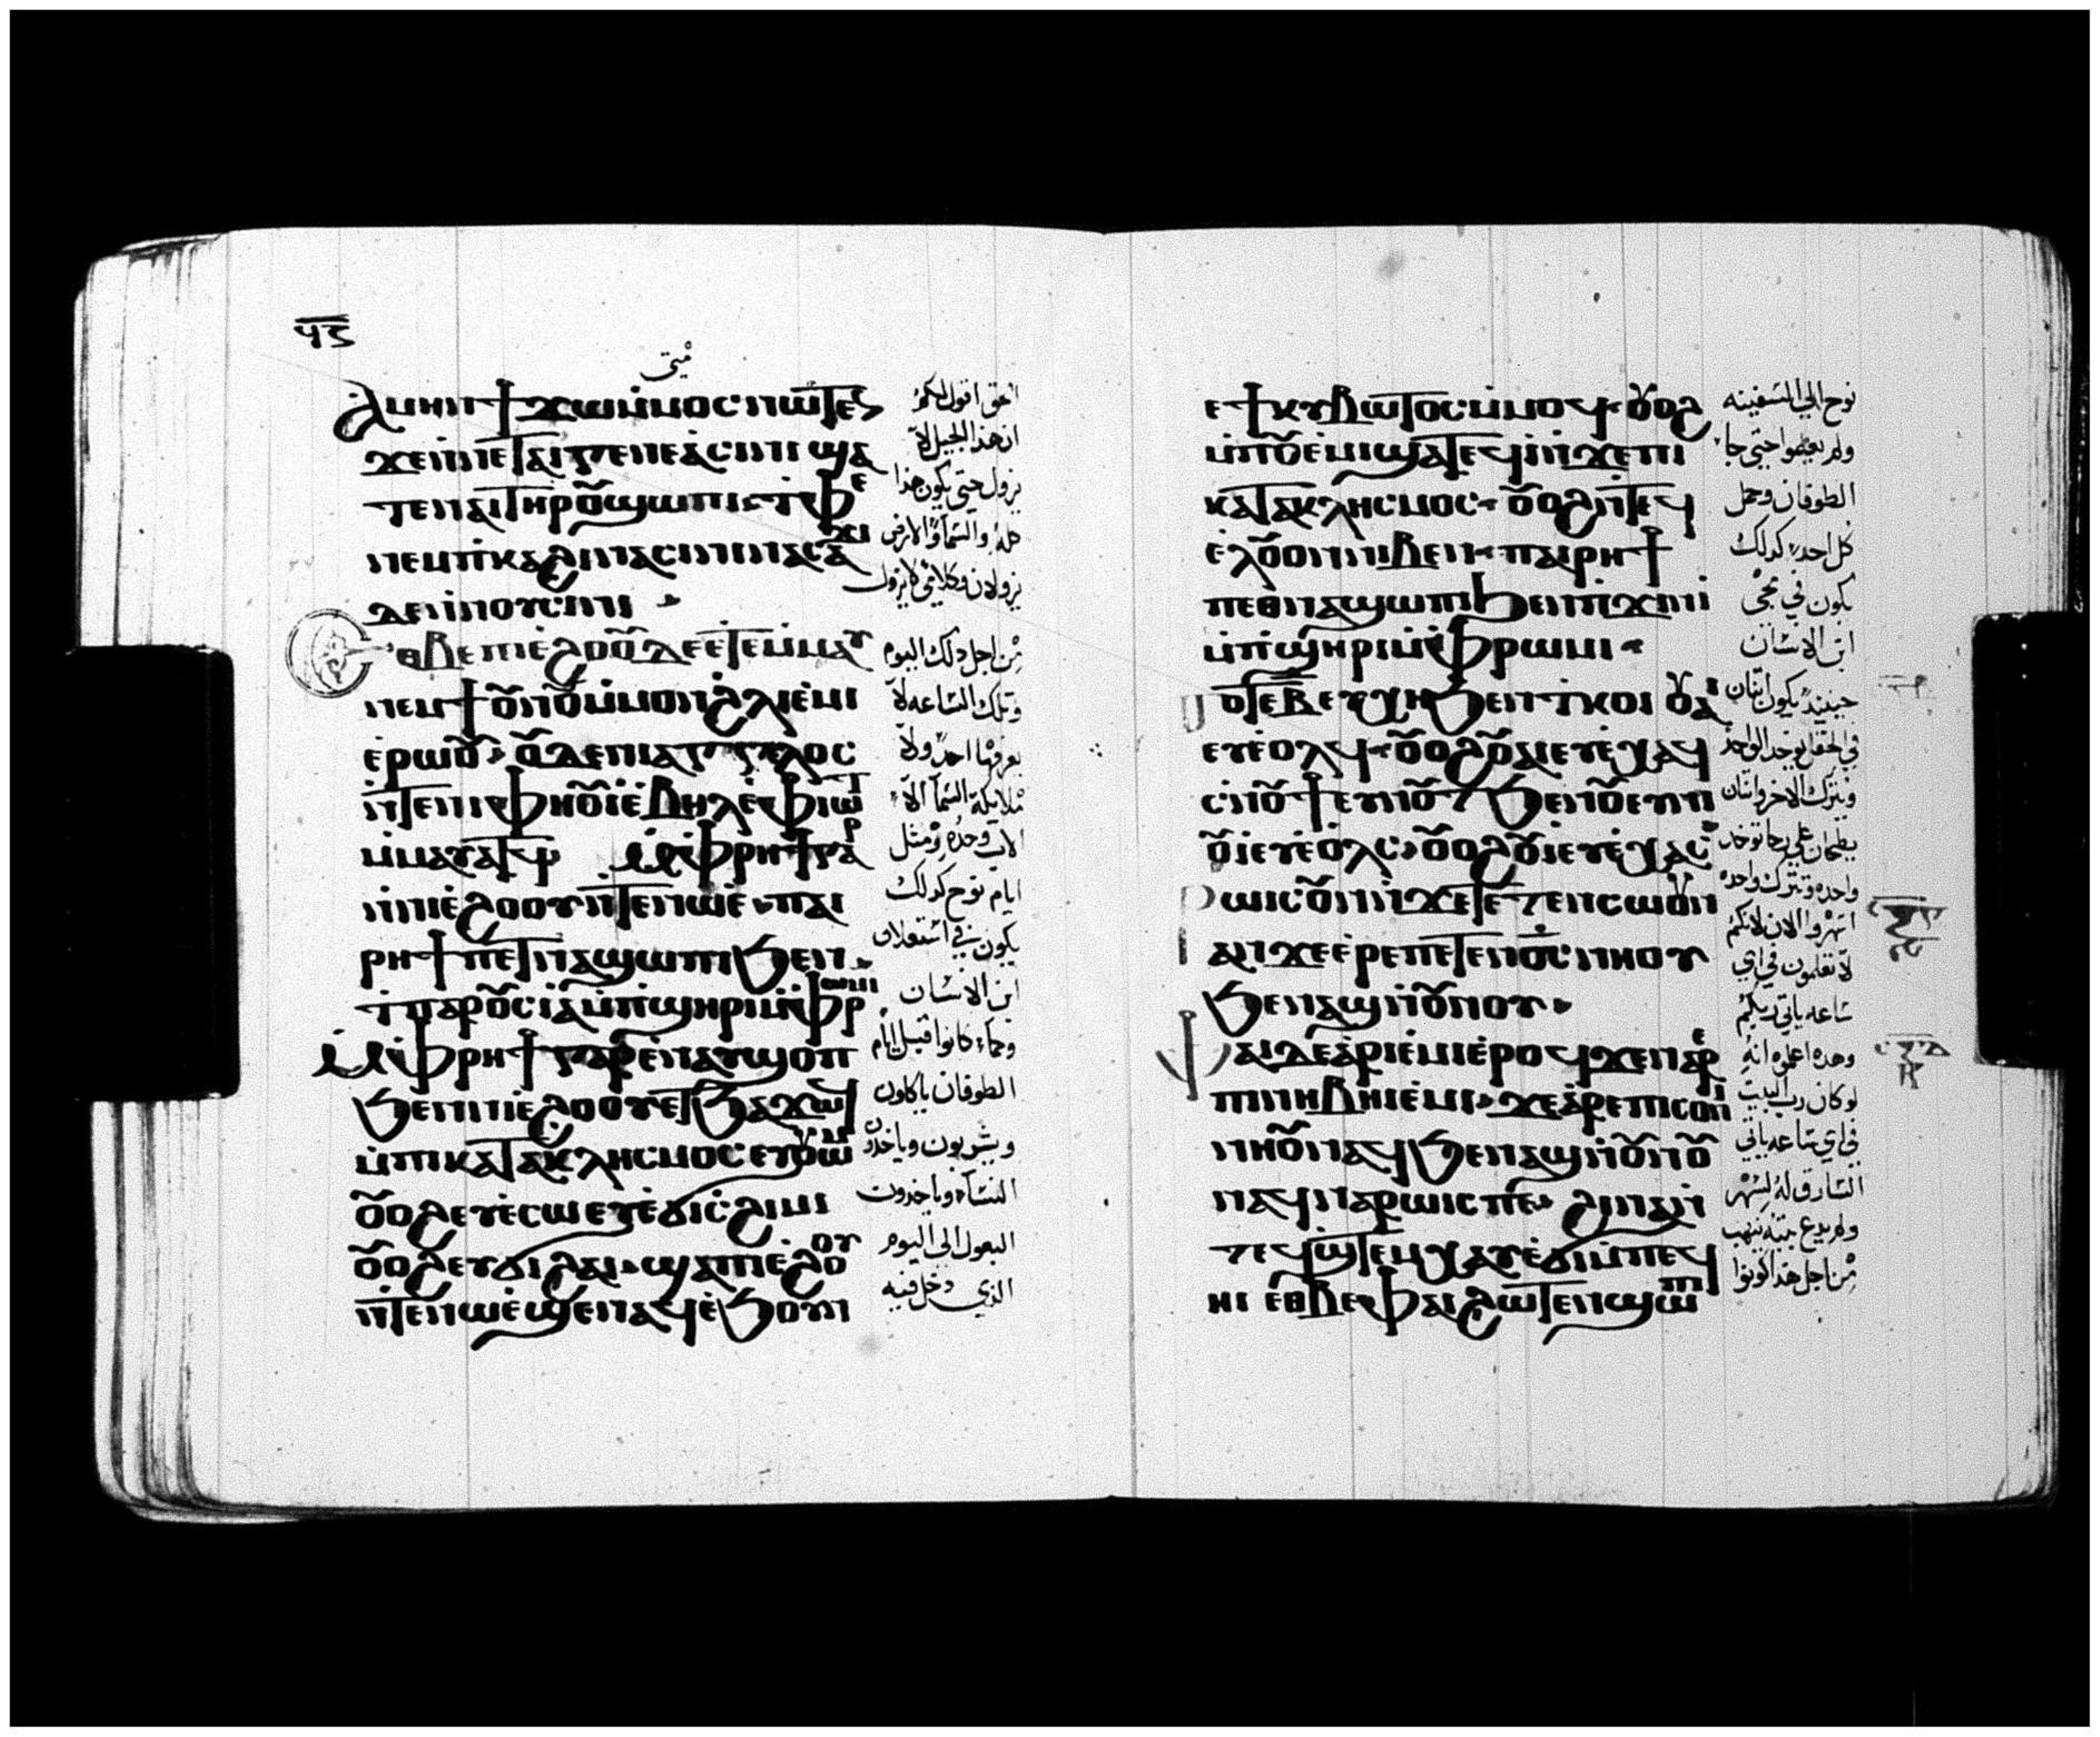 ϥ̅ⲋ̅
متى
Ⲁⲙⲏⲛ ϯϫⲱ ⲙ̇ⲙⲟⲥ ⲛⲱⲧⲉⲛ
ϫⲉ ⲛ̇ⲛⲉ ⲧⲁⲓⲅⲉⲛⲉⲁ̇ ⲥⲓⲛⲓ ϣⲁ
ⲧⲉ ⲛⲁⲓ ⲧⲏⲣⲟⲩ ϣⲱⲡⲓ ⲧ̇ⲫⲉ
ⲛⲉⲙ ⲡ̇ⲕⲁϩⲓ ⲛⲁⲥⲓⲛⲓ ⲛⲁⲥⲁϫⲓ
ⲇⲉ ⲛ̇ⲛⲟⲩⲥⲓⲛⲓ
Ⲉⲑⲃⲉ ⲡⲓⲉ̇ϩⲟⲟⲩ ⲇⲉ ⲉⲧⲉⲙ̇ⲙⲁⲩ
ⲛⲉⲙ ϯⲟⲩⲛⲟⲩ ⲙ̇ⲙⲟⲛ ϩⲗⲓ ⲉ̇ⲙⲓ
ⲉ̇ⲣⲱⲟⲩ ⲟⲩⲇⲉ ⲛⲓⲁⲅⲅⲉⲗⲟⲥ
ⲛ̇ⲧⲉ ⲛⲓⲫⲏⲟⲩⲓ̇ ⲉ̇ⲃⲏⲗ ⲉ̇ⲫⲓⲱⲧ
ⲙ̇ⲙⲁⲩⲁⲧϥ Ⲙ̇ⲫⲣⲏϯ ⲅⲁⲣ
ⲛ̇ⲛⲓⲉ̇ϩⲟⲟⲩ ⲛ̇ⲧⲉ ⲛⲱⲉ̇ ⲡⲁⲓ
ⲣⲏϯ ⲡⲉⲧⲛⲁϣⲱⲡⲓ ϧⲉⲛ
ⲧ̇ⲡⲁⲣⲟⲩⲥⲓⲁ̇ ⲙ̇ⲡ̇ϣⲏⲣⲓ ⲙ̇ⲫⲣⲱⲙⲓ
Ⲙ̇ⲫⲣⲏϯ ⲅⲁⲣ ⲉ̇ⲛⲁⲩϣⲟⲡ
ϧⲉⲛ ⲛⲓⲉ̇ϩⲟⲟⲩ ⲉⲧϧⲁϫⲱϥ
ⲙ̇ⲡⲓⲕⲁⲧⲁⲕⲗⲏⲥⲙⲟⲥ ⲉⲩⲟⲩⲱⲙ
ⲟⲩⲟϩ ⲉⲩⲉ̇ⲥⲱ ⲉⲩⲉ̇ϭⲓⲥ̇ϩⲓⲙⲓ
ⲟⲩⲟϩ ⲉⲩϭⲓϩⲁⲓ ϣⲁ ⲡⲓⲉ̇ϩⲟⲟⲩ
ⲛ̇ⲧⲉ ⲛⲱⲉ̇ ϣⲉⲛⲁϥ ⲉ̇ϧⲟⲩⲛ
الحق اقول لكم
ان هذا الجيل لا
يزول حتى يكون هذا
كله والسما والارض
يزولان وكلامي لا يزول
من اجل ذلك اليوم
وتلك الساعه لا
يعرفها احد ولا
ملايكة السما الا
الاب وحده ومثل
ايام نوح كذلك
يكون في استعلان
ابن الانسان
وكما كانوا قبل ايام
الطوفان ياكلون
ويشربون وياخذون
النسا وياخذون
البعول الى اليوم
الذي دخل فيه
ⲉ̇ϯⲕⲩⲃⲱⲧⲟⲥ ⲙ̇ⲙⲟϥ ⲟⲩⲟϩ
ⲙ̇ⲡⲟⲩⲉ̇ⲙⲓ ϣⲁⲧⲉϥⲓ̇ ⲛ̇ϫⲉ ⲡⲓ
ⲕⲁⲧⲁⲕⲗⲏⲥⲙⲟⲥ ⲟⲩⲟϩ ⲛ̇ⲧⲉϥ
ⲉ̇ⲗ ⲟⲩⲟⲛ ⲛⲓⲃⲉⲛ ⲡⲁⲓⲣⲏϯ
ⲡⲉⲑⲛⲁϣⲱⲡⲓ ϧⲉⲛ ⲡ̇ϫⲓⲛⲓ̇
ⲙ̇ⲡ̇ϣⲏⲣⲓ ⲙ̇ⲫⲣⲱⲙⲓ
ⲟⲧⲉ ⲃ ⲉⲩⲭⲏ ϧⲉⲛ ⲧ̇ⲕⲟⲓ ⲟⲩⲁⲓ
ⲉⲩⲉ̇ⲟⲗϥ ⲟⲩⲟϩ ⲟⲩⲁⲓ ⲉⲩⲉ̇ⲭⲁϥ
ⲥ̇ⲛⲟⲩϯ ⲉⲩⲛⲟⲩⲧ ϧⲉⲛ ⲟⲩⲉⲩⲛⲓ
ⲟⲩⲓ̇ ⲉⲩⲉ̇ⲟⲗⲥ ⲟⲩⲟϩ ⲟⲩⲓ̇ ⲉⲩⲉ̇ⲭⲁⲥ
ⲣⲱⲓⲥ ⲟⲩⲛ ϫⲉ ⲧⲉⲧⲉⲛⲥⲱⲟⲩⲛ
ⲁⲛ ϫⲉ ⲉ̇ⲣⲉ ⲡⲉⲧⲉⲛⲟ̅ⲥ̅ ⲛⲏⲟⲩ
ϧⲉⲛ ⲁϣ ⲛ̇ⲟⲩⲛⲟⲩ
ⲫⲁⲓ ⲇⲉ ⲁ̇ⲣⲓⲉ̇ⲙⲓ ⲉ̇ⲣⲟϥ ϫⲉ ⲛⲁⲣⲉ
ⲡⲓⲛⲏⲃⲏⲓ ⲉ̇ⲙⲓ ϫⲉ ⲁ̇ⲣⲉ ⲡⲓⲥⲟⲛⲓ
ⲛⲏⲟⲩ ⲛⲁϥ ϧⲉⲛ ⲁϣ ⲛ̇ⲟⲩⲛⲟⲩ
ⲛⲁϥⲛⲁⲣⲱⲓⲥ ⲡⲉ ϩⲓⲛⲁ ⲛ̇
ⲧⲉϥϣ̇ⲧⲉⲙⲭⲁⲩ ⲉ̇ϭⲓ ⲙ̇ⲡⲉϥ
ⲏⲓ ⲉⲑⲃⲉ ⲫⲁⲓ ϩⲱⲧⲉⲛ ϣⲱⲡⲓ
نوح الى السفينه
ولم يعلموا حتى جا
الطوفان وحمل
كل احد كذلك
يكون في مجى
ابن الانسان
حينيذ يكون اثنان
في الحقل يوخذ الواحد
ويترك الاخر واثنان
يطحنان على رحا توخذ
واحده وتترك واحده
اسهروا الان لانكم
لا تعلمون في اي
ساعه ياتي ربكم
وهذه اعلموه انه
لو كان رب البيت
في اي ساعه ياتي
السارق له ليسهر
ولم يدع بيته ينهب
من اجل هذا كونوا